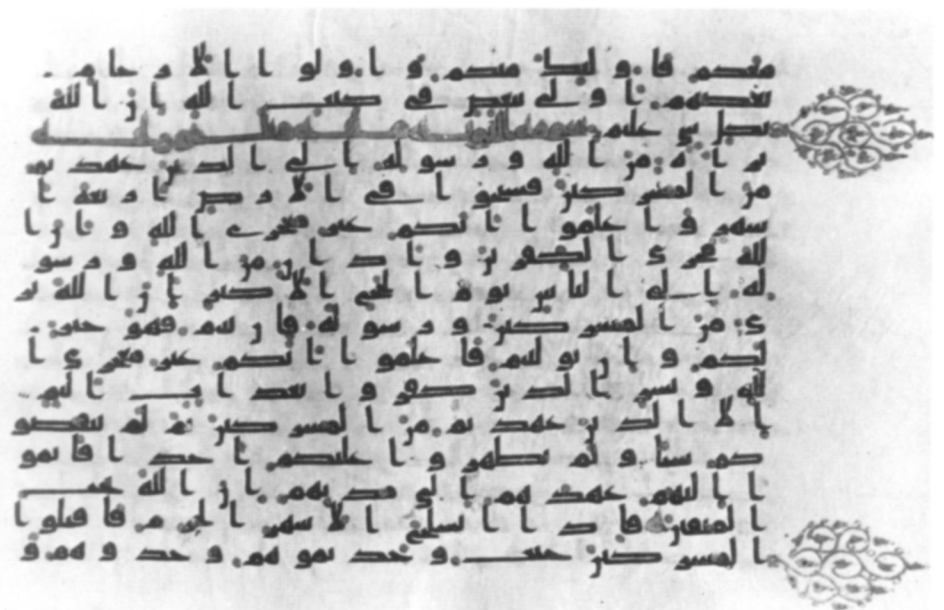 معكم فاولئك منكم واولوا الارحام
بعضهم اولى ببعض في كتب الله ان الله
بكل شي عليم سورة التوبة
براة من الله ورسوله الى الذين عهدتم
من المشركين فسيحوا في الارض اربعة ا
شهر واعلموا انكم غير معجزي الله وان ا
لله مخزي الكفرين واذان من الله ورسو
له الى الناس يوم الحج الاكبر ان الله بر
ي من المشركين ورسوله فان تبتم فهو خير
لكم وان توليتم فاعلموا انكم غير معجزي ا
لله وبشر الذين كفروا بعذاب اليم
الا الذين عهدتم من المشركين ثم لم ينقصو
كم شيئا ولم يظهروا عليكم احدا فاتمو
ا اليهم عهدهم الى مدتهم ان الله يحب
المتقين فاذا انسلخ الاشهر الحرم فاقتلوا
المشركين حيث وجدتموهم وخذوهم و